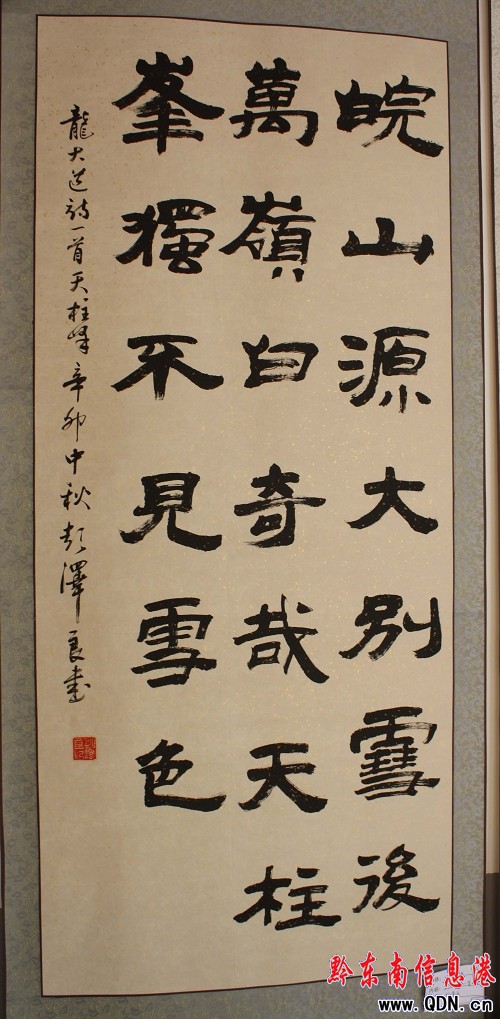 皖山源大別雪後
萬嶺白奇哉天柱
峯獨不見雪色
龍大道詩一首天柱峰辛卯中秋彭澤良書
黔东南信息港
www.QDN.cn